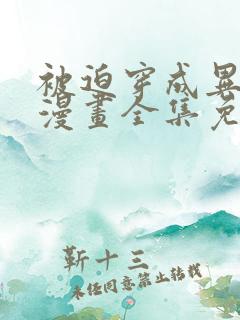 被迫穿成異
漫畫全集免
靳十三
未经同意禁止转载